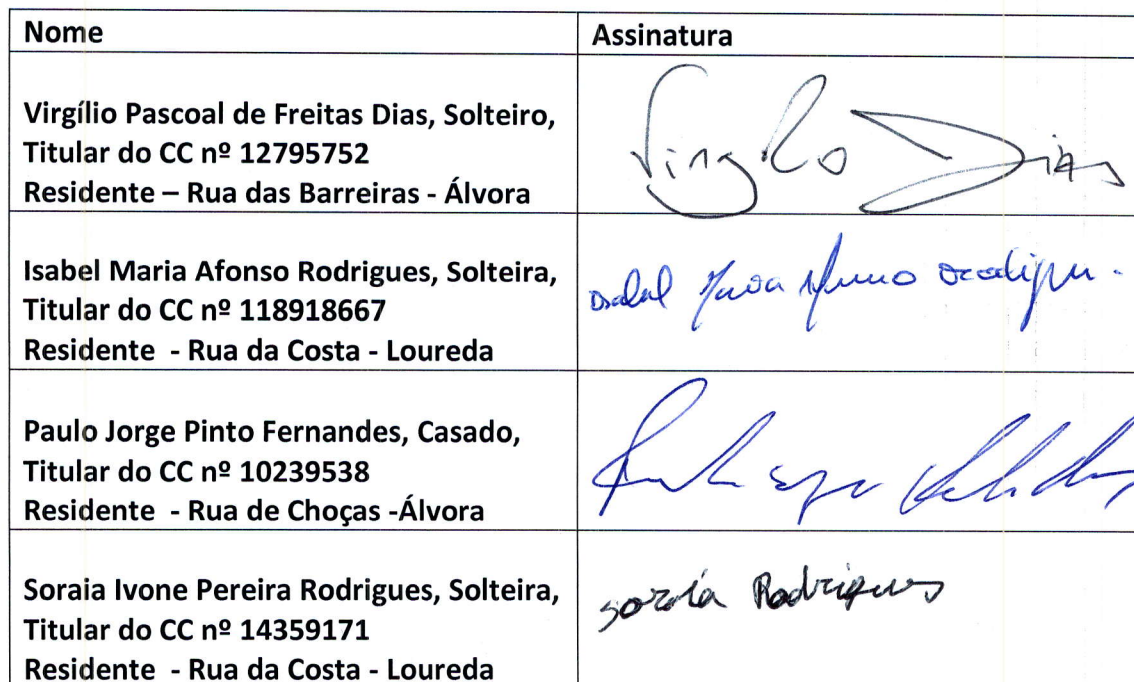 Nome
Assinatura
Virgílio Pascoal de Freitas Dias, Solteiro,
Titular do CC nº 12795752
Residente – Rua das Barreiras - Álvora
Virgílio Dias
Isabel Maria Afonso Rodrigues, Solteira,
Titular do CC nº 118918667
Residente - Rua da Costa - Loureda
Isabel Maria Afonso Rodrigues
Paulo Jorge Pinto Fernandes, Casado,
Titular do CC nº 10239538
Residente - Rua de Choças -Álvora
Soraia Ivone Pereira Rodrigues, Solteira,
Titular do CC nº 14359171
Residente - Rua da Costa - Loureda
Soraia Rodrigues